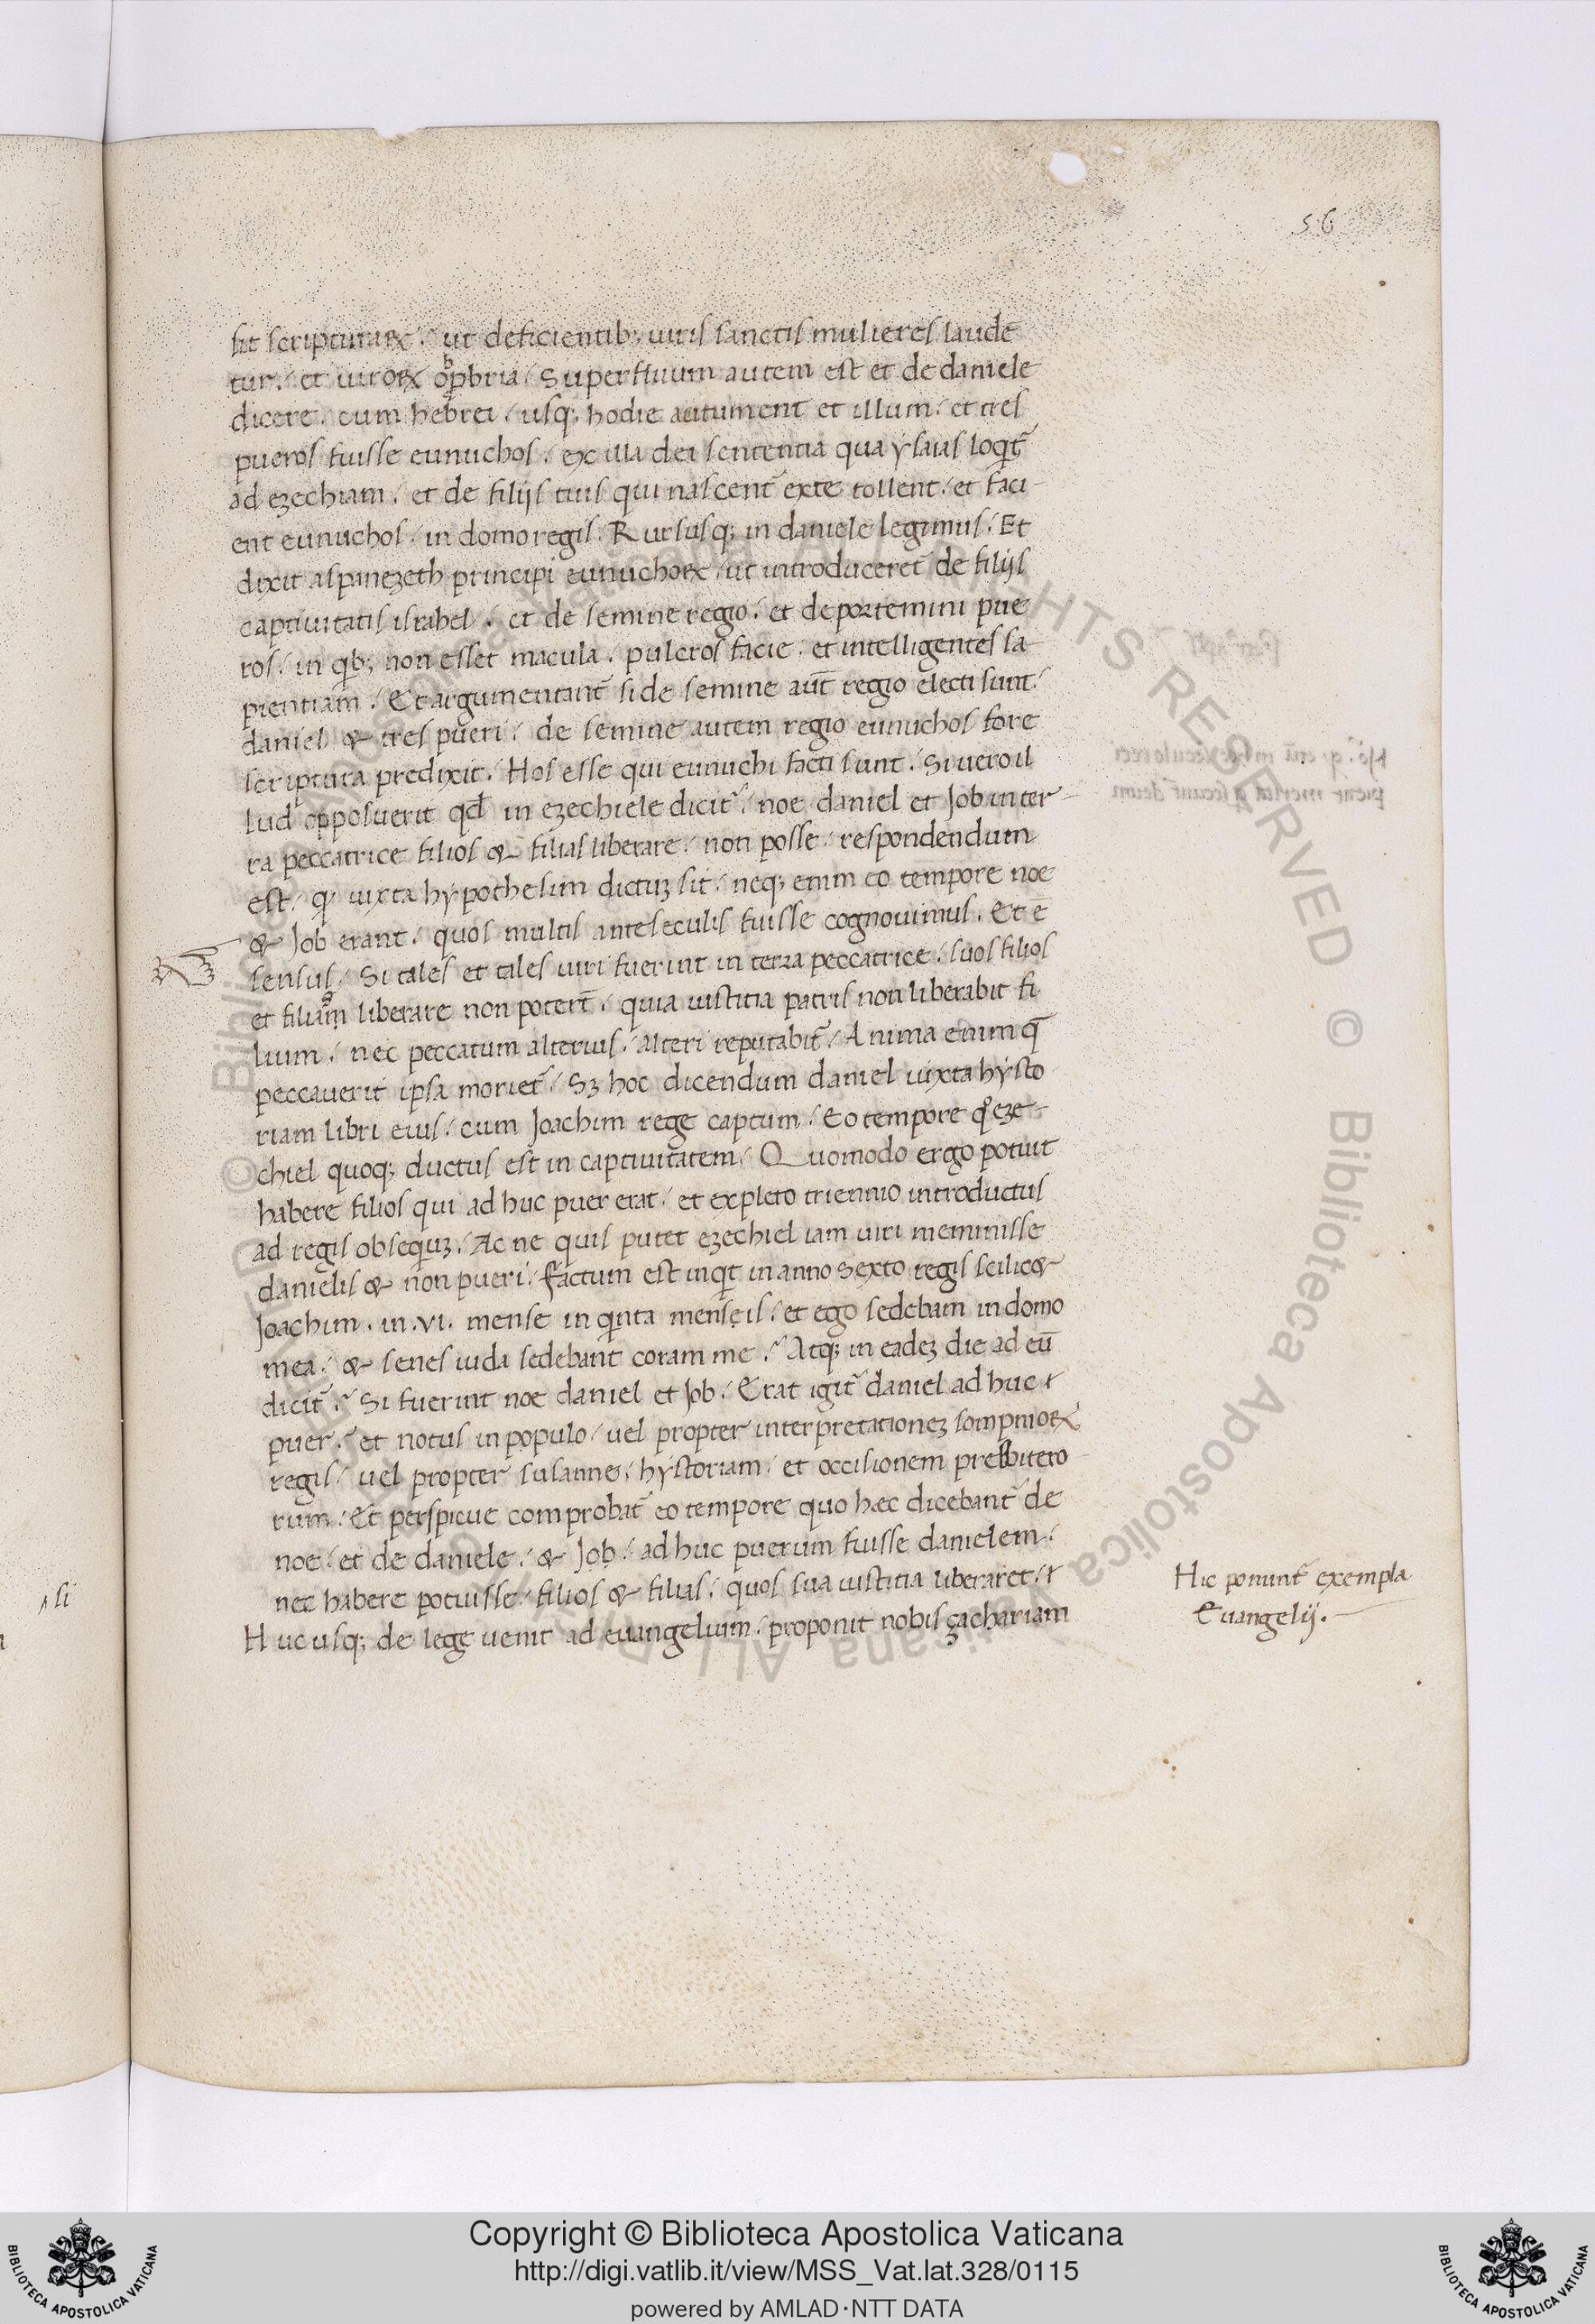 56
sit scripturaꝝ. ut deficientib; uiris sanctis mulieres laudē
tur. et uiroꝝ opbria. Superfluum autem est et de daniele
dicere. cum hebrei usq; hodie autument et illum. et tres
pueros fuisse eunuchos. ex illa dei sententia qua ysaias loqt̄
ad ezechiam. et de filijs tuis qui nascent̄ exte tollent. et faci
ent eunuchos in domo regis. Rursusq; in daniele legimus. Et
dixit aspanezeth principi eunuchoꝝ ut introduceret de filijs
captiuitatis israhel. et de semine regio. et deportemini pue
ros. in qb; non esset macula. pulcros facie. et intelligentes sa
pientiam. Et argumentant̄ si de semine aūt regio electi sunt.
daniel & tres pueri. de semine autem regio eunuchos fore
scriptura predixit. Hos esse qui eunuchi facti sunt. Si uero il
lud opposuerit qd in ezechiele dicit̄. noe daniel et Job in ter
ra peccatrice filios & filias liberare. non posse. respondendum
est. q iuxta hypothesim dictuꝫ sit. neq; enim eo tempore noe
& Job erant. quos multis ante seculis fuisse cognouimus. Et ē
sensus. Si tales et tales uiri fuerint in terra peccatrice. suos filios
et filiam liberare non potert̄. quia iustitia patris non liberabit fi
lium. nec peccatum alterius. alteri reputabit̄. Anima enim q̄
peccauerit ipsa moriet̄. Sꝫ hoc dicendum daniel iuxta hysto
riam libri eius. cum Joachim rege captum. Eo tempore qo eze
chiel quoq; ductus est in captiuitatem. Quomodo ergo potuit
habere filios qui ad huc puer erat. et expleto triennio introductus
ad regis obsequiꝫ. Ac ne quis putet ezechiel iam uiri meminisse
danielis & non pueri. factum est inqt in anno sexto regis scilic&
Joachim. in .vi. mense in qinta mensis. et ego sedebam in domo
mea. & senes iuda sedebant coram me. Atq; in eadeꝫ die ad eū
dicit̄. Si fuerint noe daniel et Job. Erat igit̄ daniel ad huc
puer. et notus in populo. uel propter interpretationeꝫ sompnioꝝ
regis. uel propter susanne. hystoriam. et occisionem presbitero
rum. Et perspicue comprobat̄ eo tempore quo hæc dicebant̄ de
noe. et de daniele. & Job. ad huc puerum fuisse danielem.
nec habere potuisse. filios & filias. quos sua iustitia liberaret.
Huc usq; de lege uenit ad euangelium. proponit nobis zachariam
Hic ponunt̄ exempla
Euangelij.
si
Copyright © Biblioteca Apostolica Vaticana
http://digi.vatlib.it/view/MSS_Vat.lat.328/0115
powered by AMLAD·NTT DATA
BIBLIOTECA APOSTOLICA VATICANA
BIBLIOTECA APOSTOLICA VATICANA